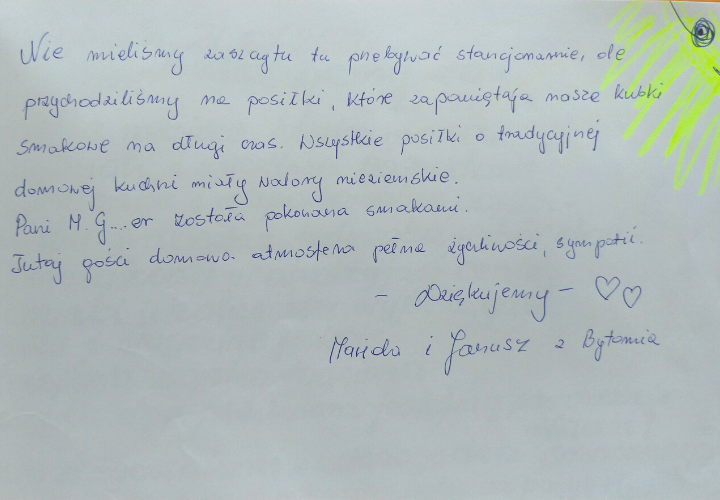 Nie mieliśmy zaszczytu tu przebywać stancjonarnie, ale
przychodziliśmy na posiłki, które zapamiętają nasze kubki
smakowe na długi czas. Wszystkie posiłki o tradycyjnej
domowej kuchni miały walory nieziemskie.
Pani M. G...er została pokonana smakami.
Tutaj gości domowa atmosfera pełna życzliwości, sympatii.
- Dziękujemy - ♡♡
i Janusz z Bytomia